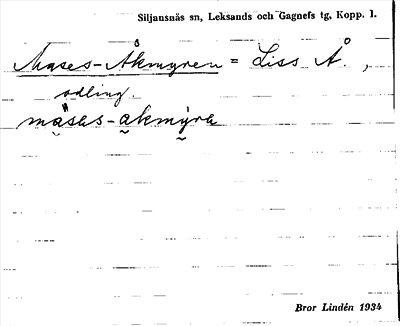 Siljansnäs sn, Leksands och Gagnefs tg, Kopp. l.
Mases-Åkmyren = Liss Å. ,
odling.
mäses-akmyra
Bror Lindén 1934